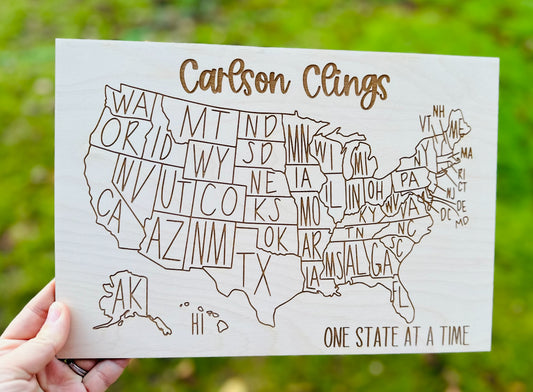 Carlson Clings
WA MT ND MN WI MI VT NH ME
OR ID WY SD IA NY MA
NV UT CO NE IL IN OH PA RI
CA KS MO KY WV VA NJ CT
AZ NM OK AR TN NC DC DE
TX LA MS AL GA SC MD
AK HI FL
ONE STATE AT A TIME